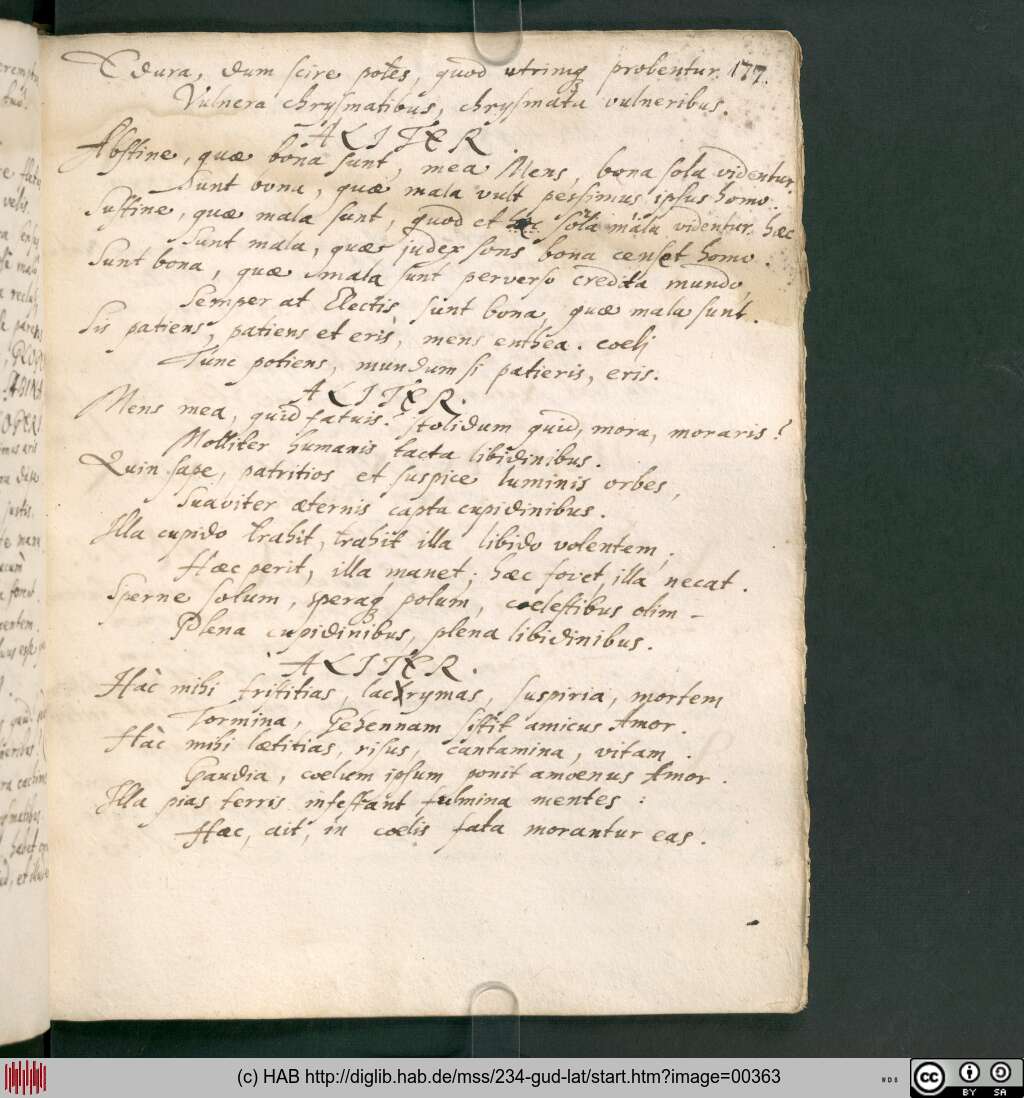 Edura, dum scire potes, quod utrimq probentur. 177.
Vulnera chrysmatibus, chrysmata vulneribus.
ALITER.
Abstine, quæ bona sunt, mea Mens, bona sola videntur.
Sunt bona, quæ mala vult pessimus ipsus homo.
Sustine, quæ mala sunt, quod et sola mala videntur. hæc
Sunt mala, quæ judex sons bona censet homo.
Sunt bona, quæ mala sunt perverso credita mundo
Semper at Electis sunt bona, quæ mala sunt.
Sis patiens, patiens et eris, mens enthea. coeli
Tunc potiens, mundum si patieris, eris.
ALITER.
Mens mea, quid fatuis? stolidum quid, mora, moraris?
Molliter humanis tacta libidinibus.
Quin sape, patritios et suspice luminis orbes,
Suaviter æternis capta cupidinibus.
Illa cupido trahit, trahit illa libido volentem,
Hæc perit, illa manet; hæc fovet, illa necat.
Sperne solum, speraq polum, coelestibus olim -
Plena cupidinibus, plena libidinibus.
ALITER.
Hàc mihi tristitias, lachrymas, suspiria, mortem
Tormina, Gehennam sistit amicus Amor.
Hàc mihi lætitias, risus, cantamina, vitam.
Gaudia, coelum ipsum ponit amoenus Amor.
Illa pias terris infestant fulmina mentes:
Hæc, ait, in coelis fata morantur eas.
(c) HAB http://diglib.hab.de/mss/234-gud-lat/start.htm?image=00363
WDB
cc BY SA